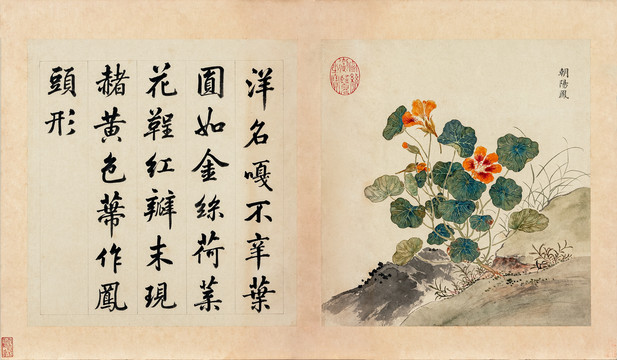 朝陽鳳
洋名嘎不辛葉
圓如金絲荷葉
花鞓紅瓣末現
赭黃色蒂作鳳
頭形